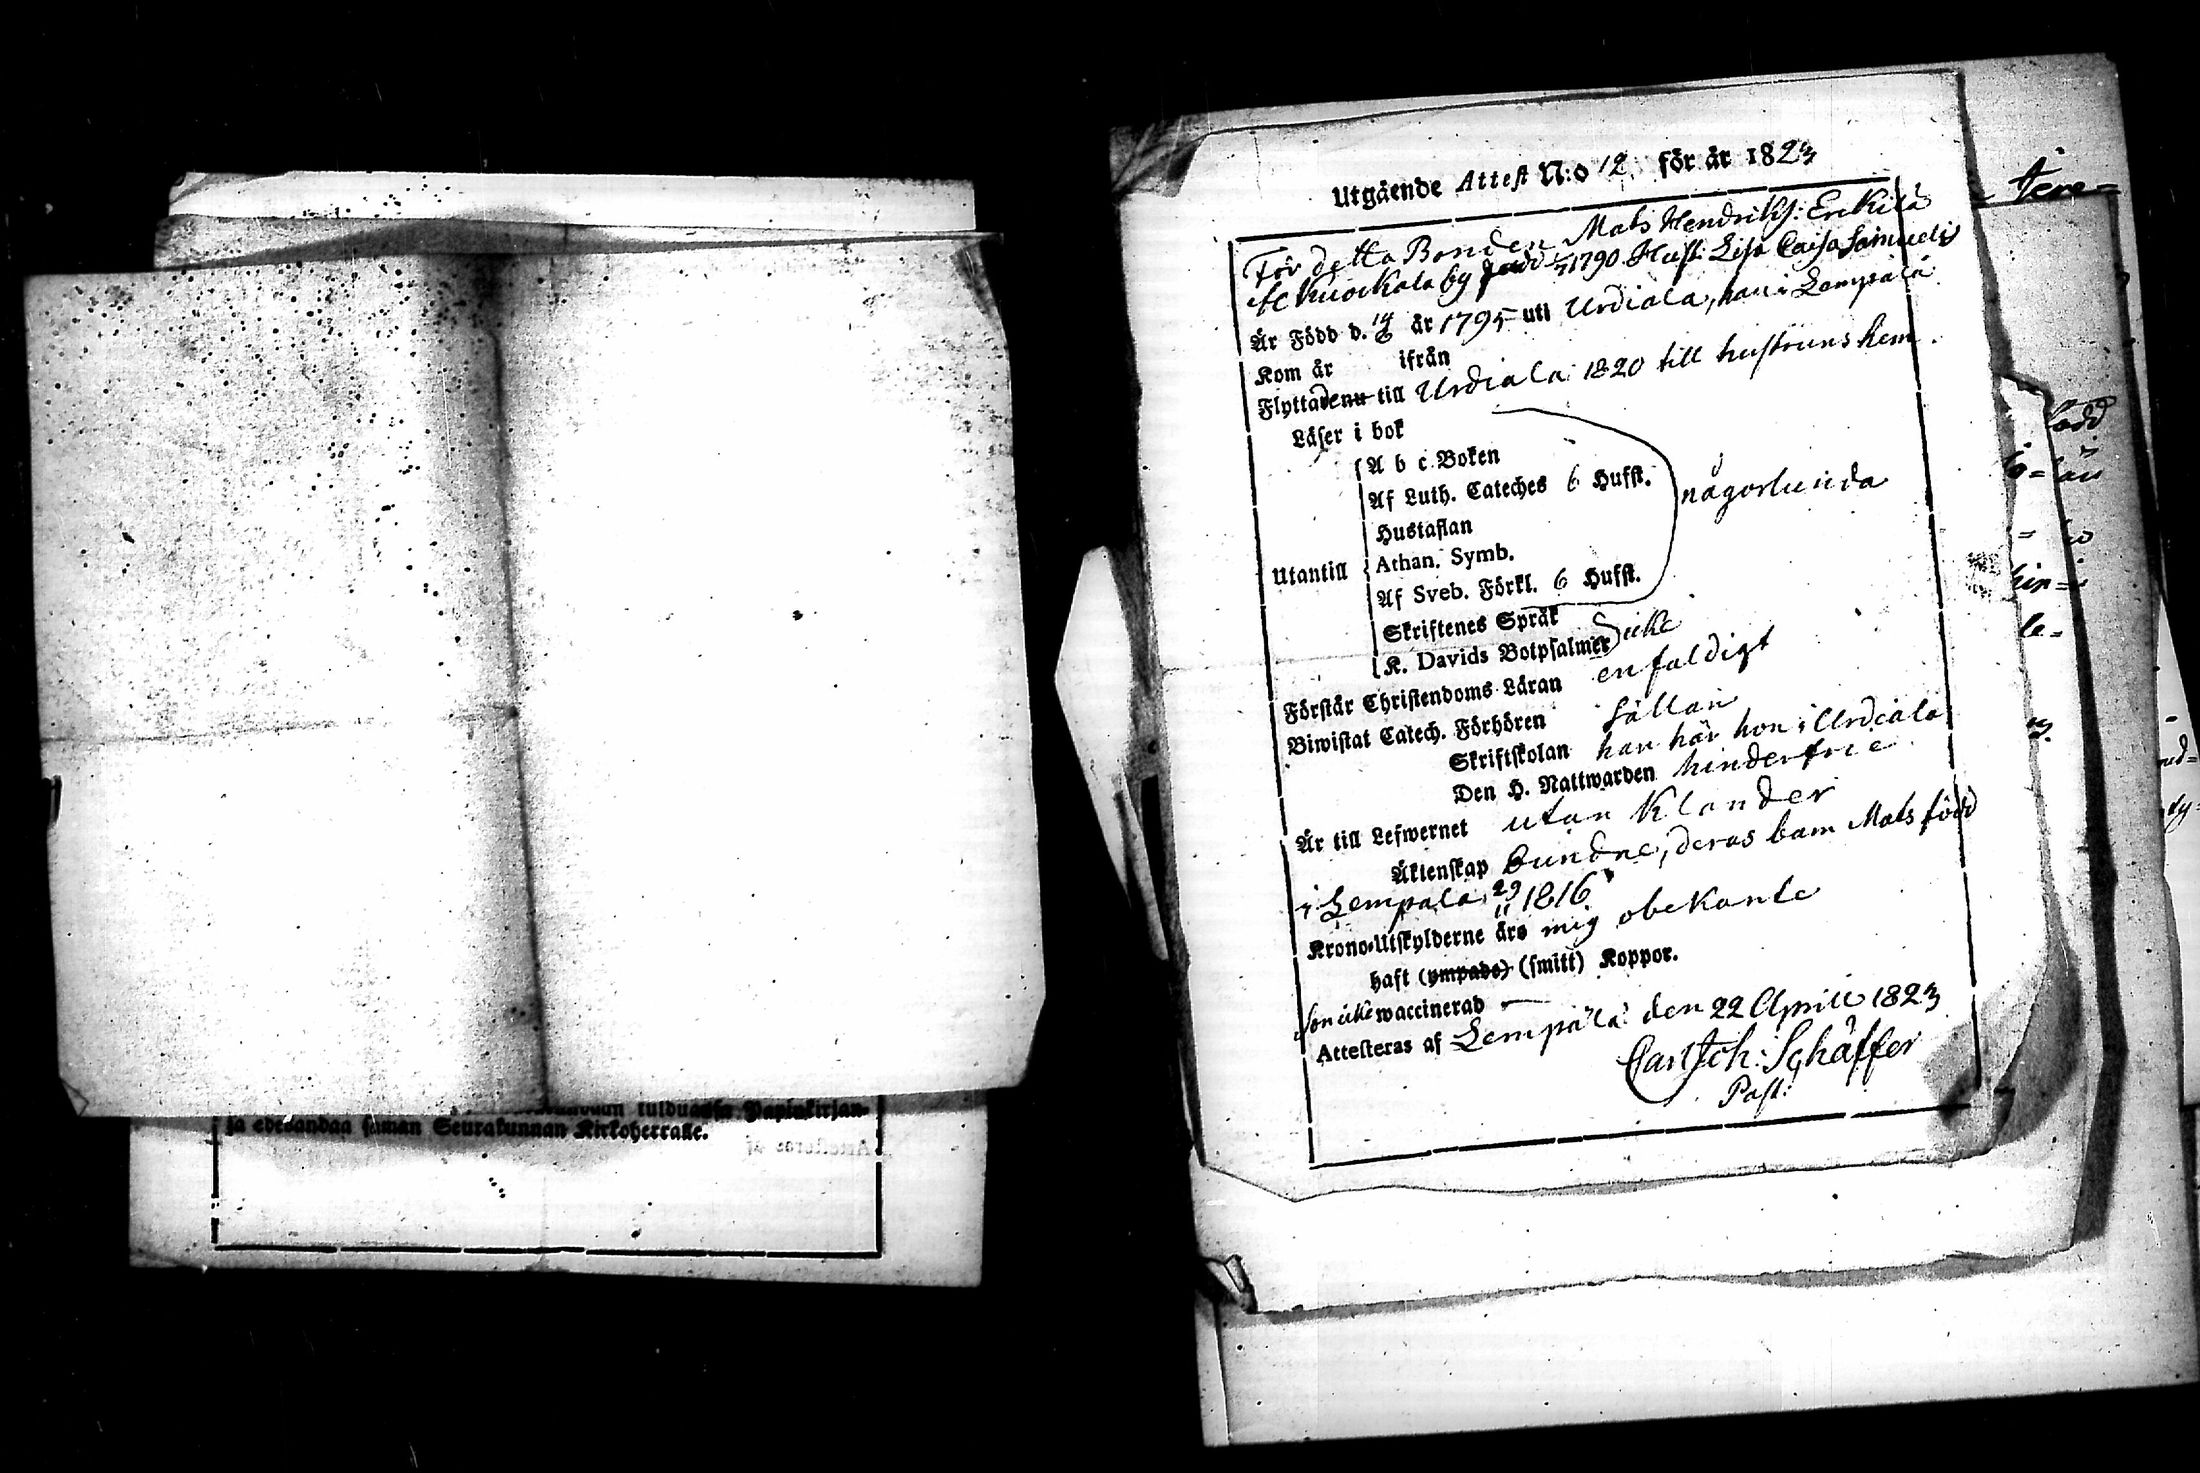 tulduansa Papinkirjan-
ja edesandaa saman Seurakunnan Kirkoherralle.
Attesteras af
Utgående Attest N:o 12 för år 1823
För detta Bonden Mats Hendriks: Erkilä
fr Kuockala by född 1790 Hust: Lisa Caisa Samuelsd
Är Född d. 14/6 år 1795 uti Urdiala, han i Lempälä
Kom år ifrån
Flyttade nu till Urdiala 1820 till hustruns hem.
Läser i bok
A b c Boken
Af Luth. Cateches 6 Hufst.
någorlunda
Hustaflan
Utantill
Athan. Symb.
Af Sveb. Förkl. 6 Hufst.
Skriftenes Språk
K. Davids Botpsalmer icke
Förstår Christendoms Läran enfaldigt
Biwistat Catech. Förhören sällan
Skriftskolan han här hon i Urdiala
Den H. Nattwarden hinderfrie
Är till Lefwernet utan Klander
Äktenskap bundne, deras barn Mats född
i Lempälä 29/11 1816
Krono-Utskylderne äro mig obekante
haft (ympade) (smitt) Koppor.
son icke waccinerad
Attesteras af Lempälä den 22 Aprill 1823
Carl Joh: Schäffer
Past: